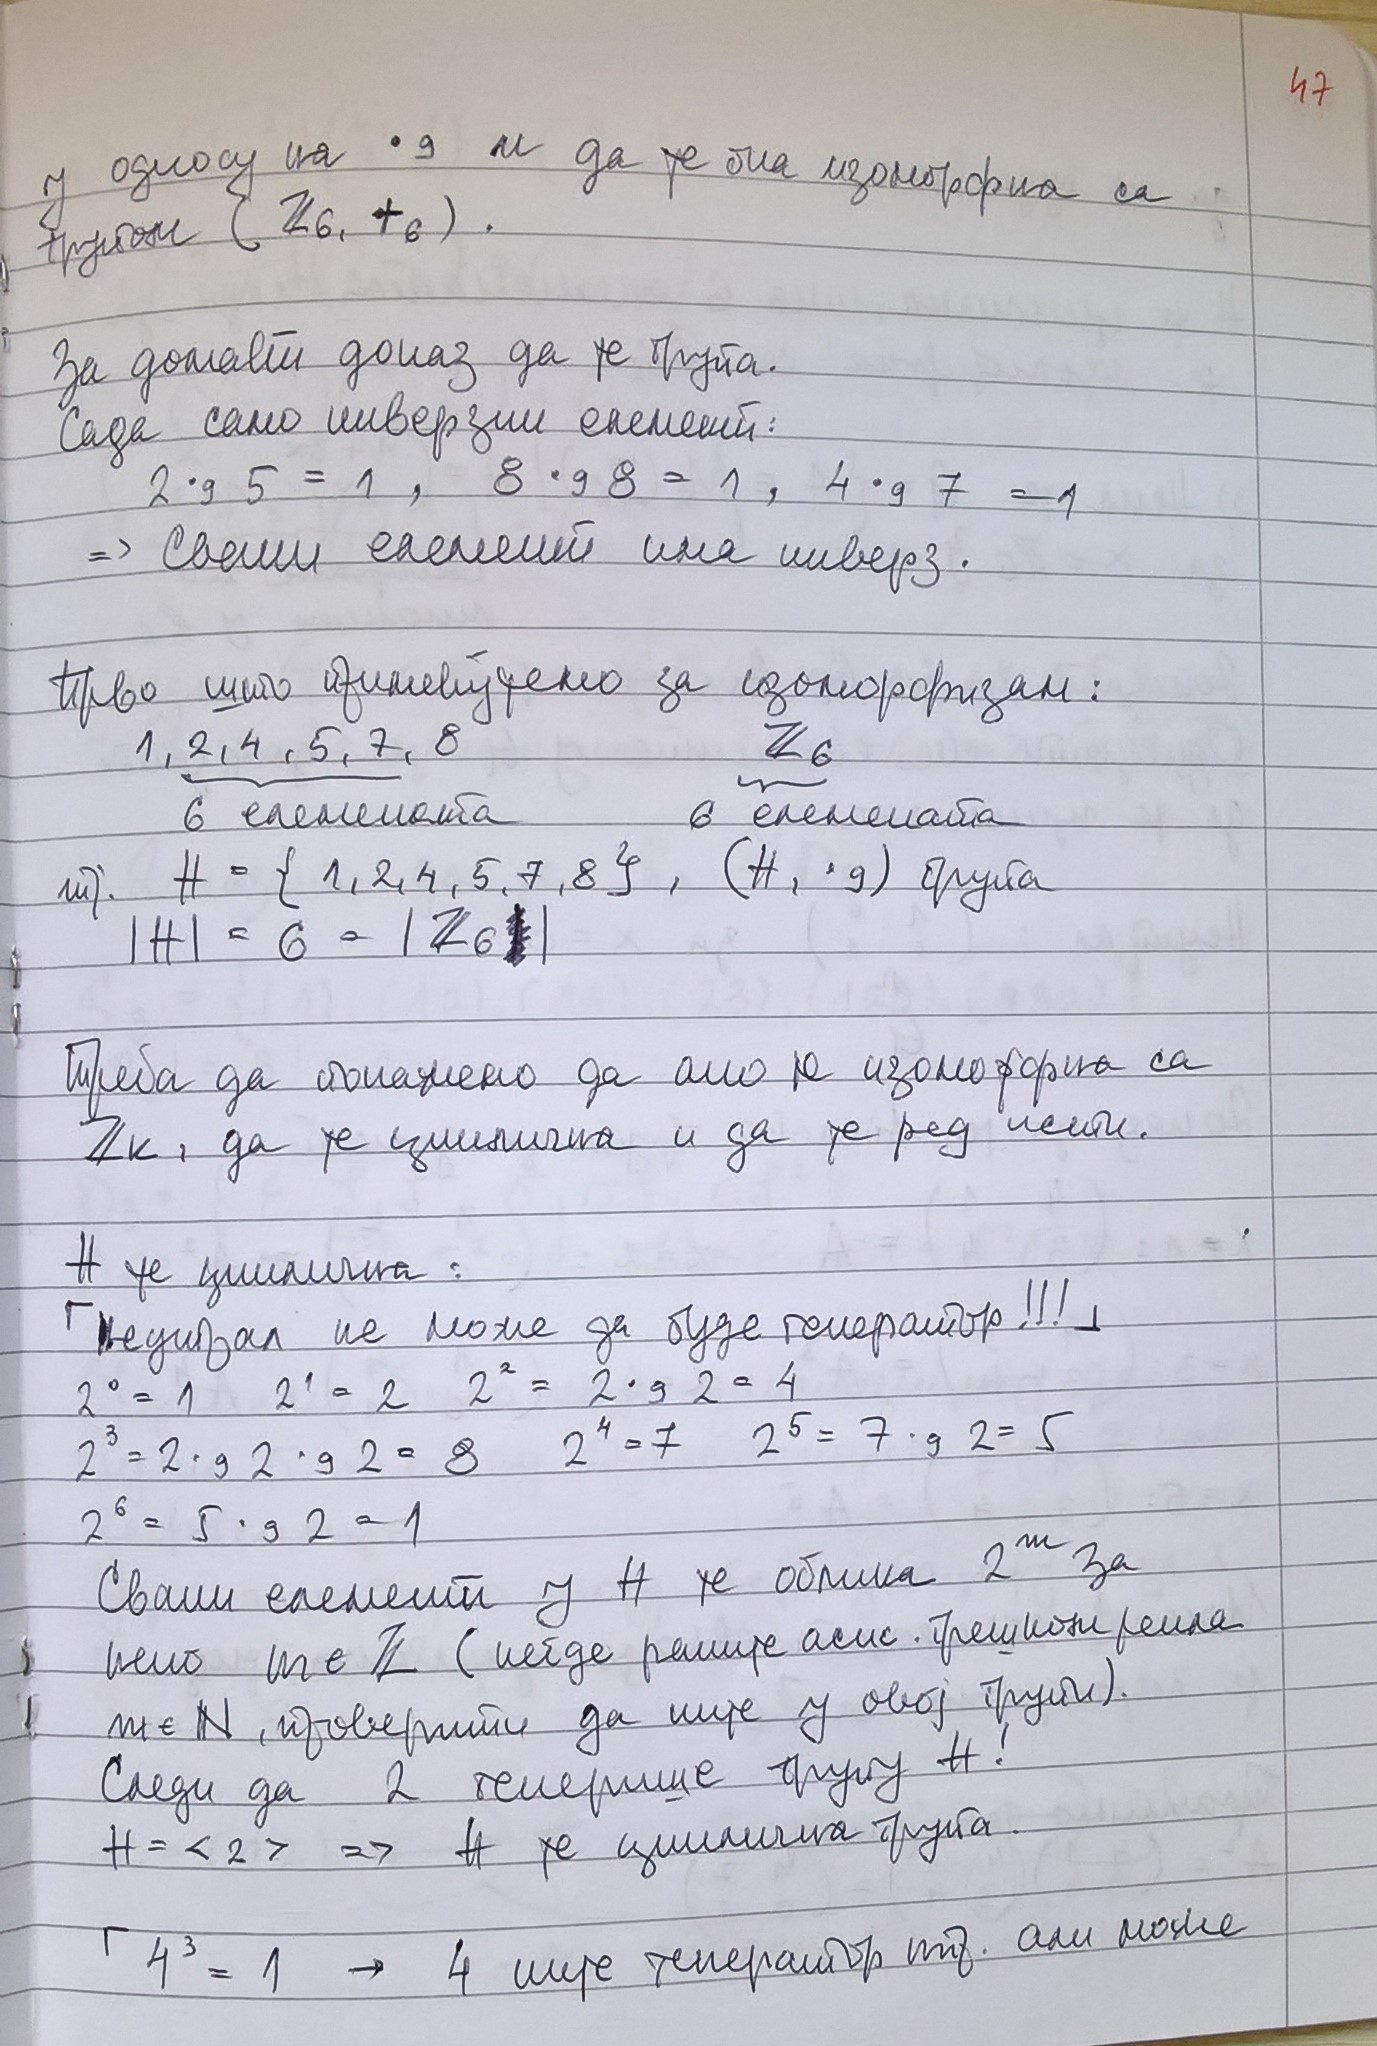 47
у односу на ·₉ и да је она изоморфна са
групом (ℤ₆, +₆).
За домаћи доказ да је група.
Сада само инверзни елемент:
2 ·₉ 5 = 1, 8 ·₉ 8 = 1, 4 ·₉ 7 = 1
=> Сваки елемент има инверз.
Прво што примећујемо за изоморфизам:
1, 2, 4, 5, 7, 8 ℤ₆
6 елемената 6 елемената
тј. H = {1, 2, 4, 5, 7, 8}, (H, ·₉) група
|H| = 6 = |ℤ₆|
Треба да покажемо да ако је изоморфна са
ℤₖ, да је циклична и да је ред исти.
H је циклична:
⌈Неутрал не може да буде генератор!!!⌋
2⁰ = 1 2¹ = 2 2² = 2 ·₉ 2 = 4
2³ = 2 ·₉ 2 ·₉ 2 = 8 2⁴ = 7 2⁵ = 7 ·₉ 2 = 5
2⁶ = 5 ·₉ 2 = 1
Сваки елемент у H је облика 2ᵐ за
неко m ∈ ℤ (негде раније асис. грешком рекла
m ∈ ℕ, проверити да није у овој групи).
Следи да 2 генерише групу H!
H = <2> => H је циклична група.
⌈ 4³ = 1 → 4 није генератор тј. али може